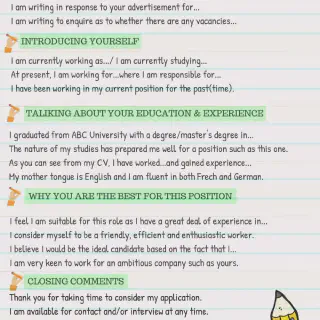 I am writing in response to your advertisement for...
I am writing to enquire as to whether there are any vacancies...
INTRODUCING YOURSELF
I am currently working as.../ I am currently studying...
At present, I am working for...where I am responsible for...
I have been working in my current position for the past(time).
TALIKING ABOUT YOUR EDUCATION & EXPERIENCE
I graduated from ABC University with a degree/master's degree in...
The nature of my studies has prepared me well for a position such as this one.
As you can see from my CV, I have worked...and gained experience...
My mother tongue is English and I am fluent in both Frech and German.
WHY YOU ARE THE BEST FOR THIS POSITION
I feel I am suitable for this role as I have a great deal of experience in...
I consider myself to be a friendly, efficient and enthusiastic worker.
I believe I would be the ideal candidate based on the fact that I...
I am very keen to work for an ambitious company such as yours.
CLOSING COMMENTS
Thank you for taking time to consider my application.
I am available for contact and/or interview at any time.